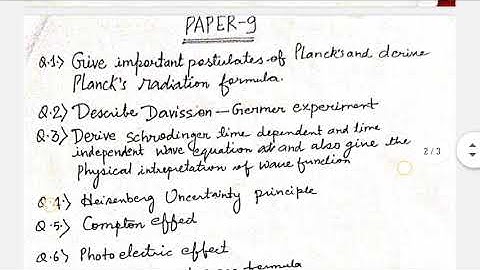 PAPER-9
Q.1> Give important postulates of Planck's and derive
Planck's radiation formula.
Q.2> Describe Davission - Germer experiment
Q.3> Derive schrodinger time dependent and time
independent wave equation and also give the
Physical intrepretation of wave function
2 / 3
Q.4> Heisenberg Uncertainty principle
Q.5.> Compton effect
Q.6> Photo electric effect
formula